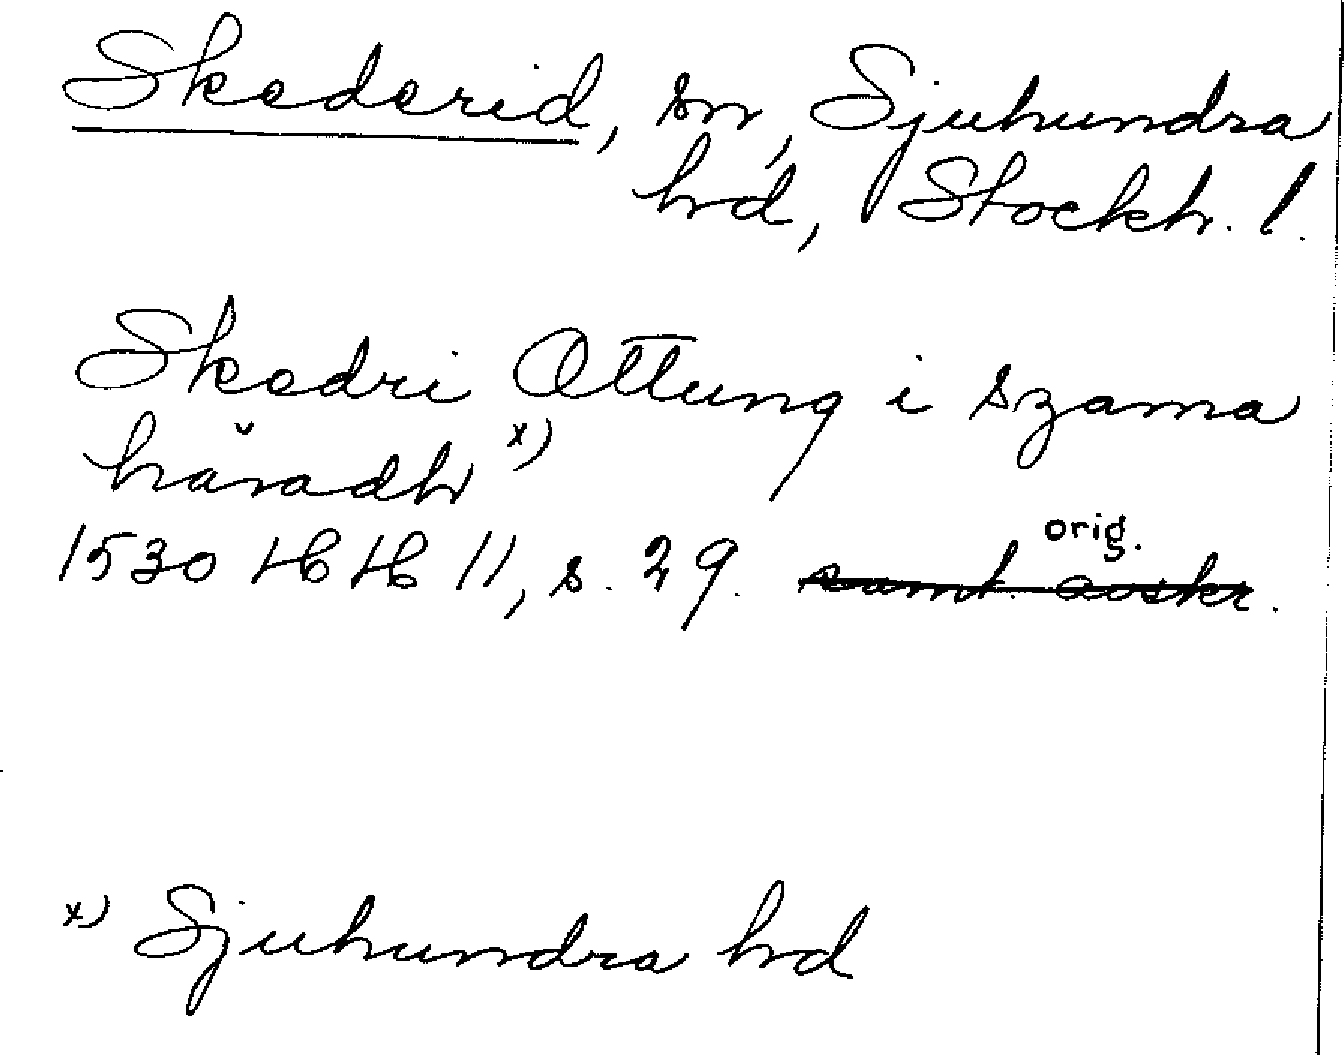 Skederid, sn, Sjuhundra
hd, Stockh. l.
Skedri Ottung i szama
häradh x)
orig.
1530 HH 11, s. 29. samt. avskr.
x) Sjuhundra hd